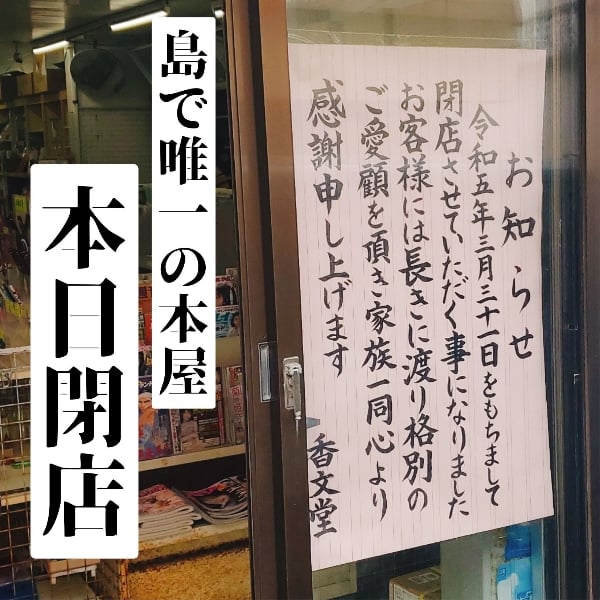 島で唯一の本屋
本日閉店
お知らせ
令和五年三月三十一日をもちまして
閉店させていただく事になりました
お客様には長きに渡り格別の
ご愛顧を頂き家族一同心より
感謝申し上げます
香文堂